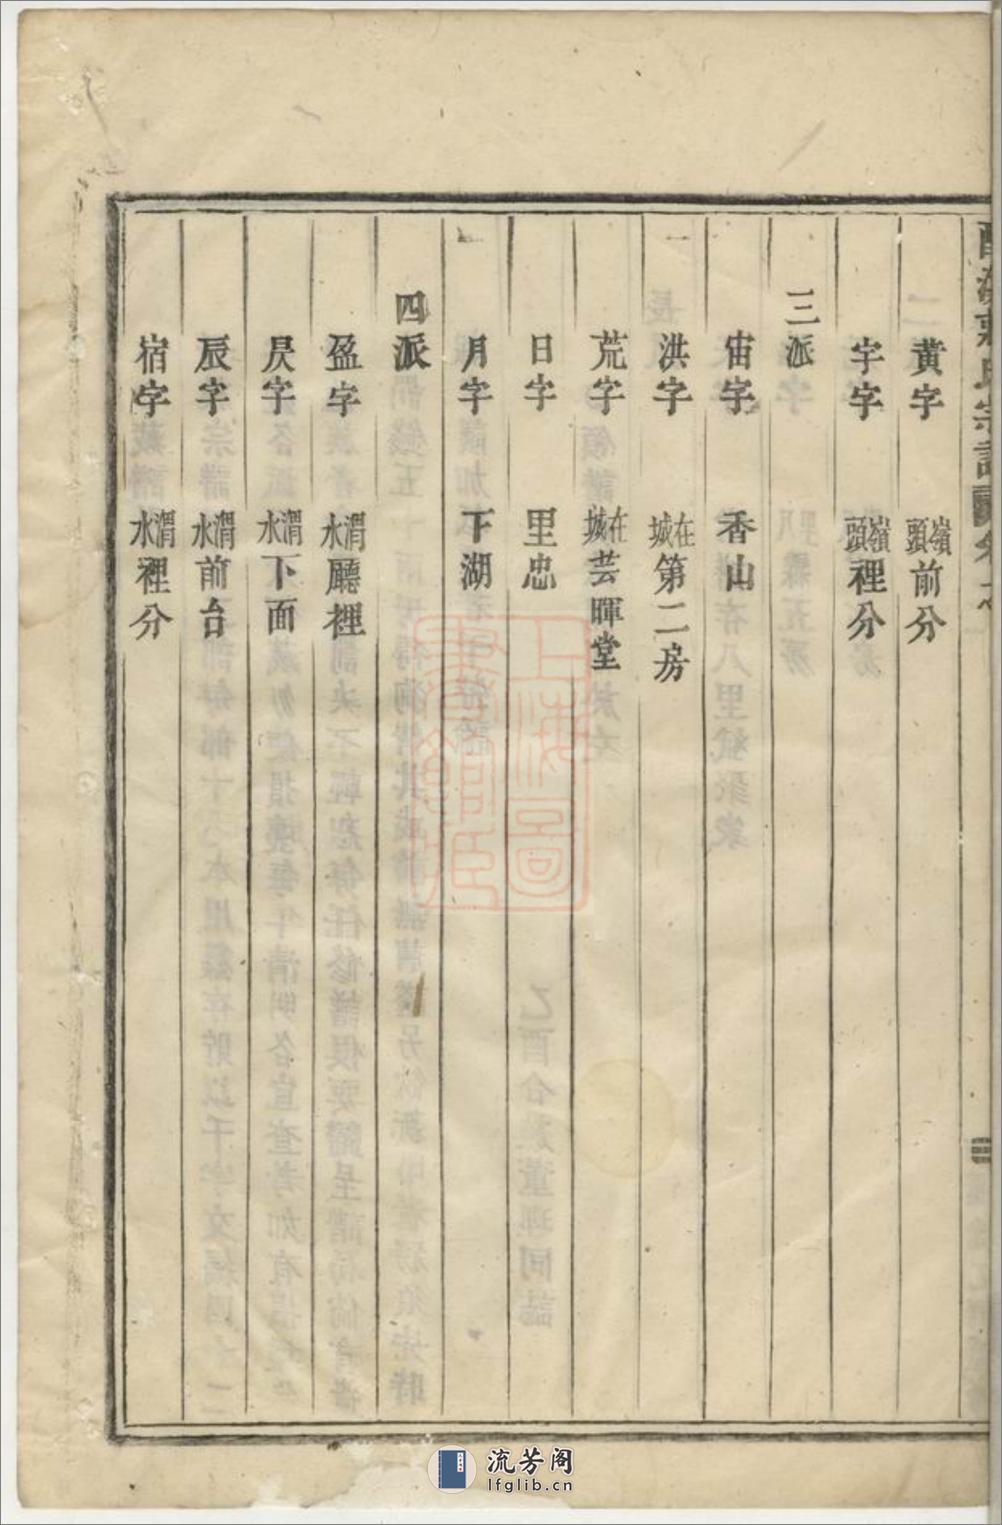 黃字 嶺頭前分
宇字 嶺頭裡分
三派
宙字 香山
洪字 在城第二房
荒字 在城芸暉堂
日字 里忠
月字 下湖
四派
盈字 渭水廳裡
昃字 渭水下面
辰字 渭水前台
宿字 渭水裡分
上海圖書館藏
流芳阁
lfglib.cn